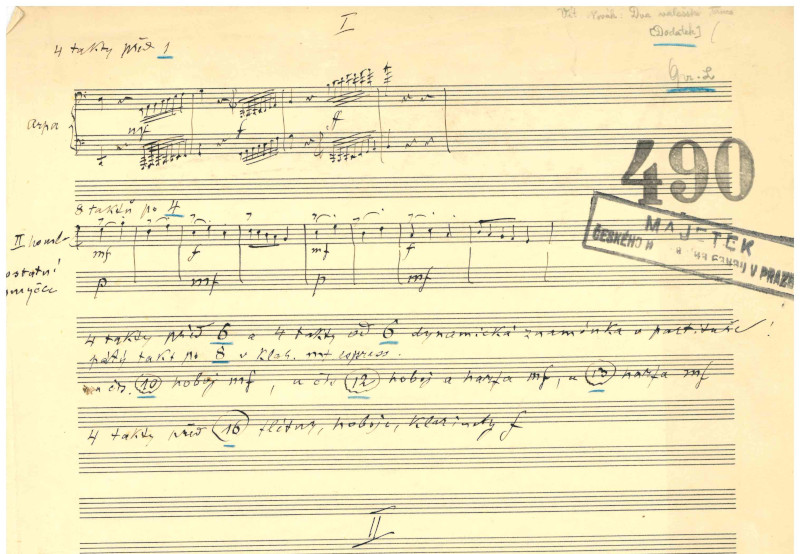 I
Vít. Novák: Dva
[Dodatek]
4 takty před 1
Arpa
mf f ff
490
MAJETEK
ČESKÉHO V PRAZE
8 taktů po 4
II housl
mf f mf f
ostatní
smyčce
p mf p mf
4 takty před 6 a 4 takty od 6 dynamická znaménka v partituře!
pátý takt po 8 v klar. mf espress.
u čís. 10 hoboj mf, u čís 12 hoboj a harfa mf, u 13 harfa mf
4 takty před 16 flétny, hoboje, klarinety f
II